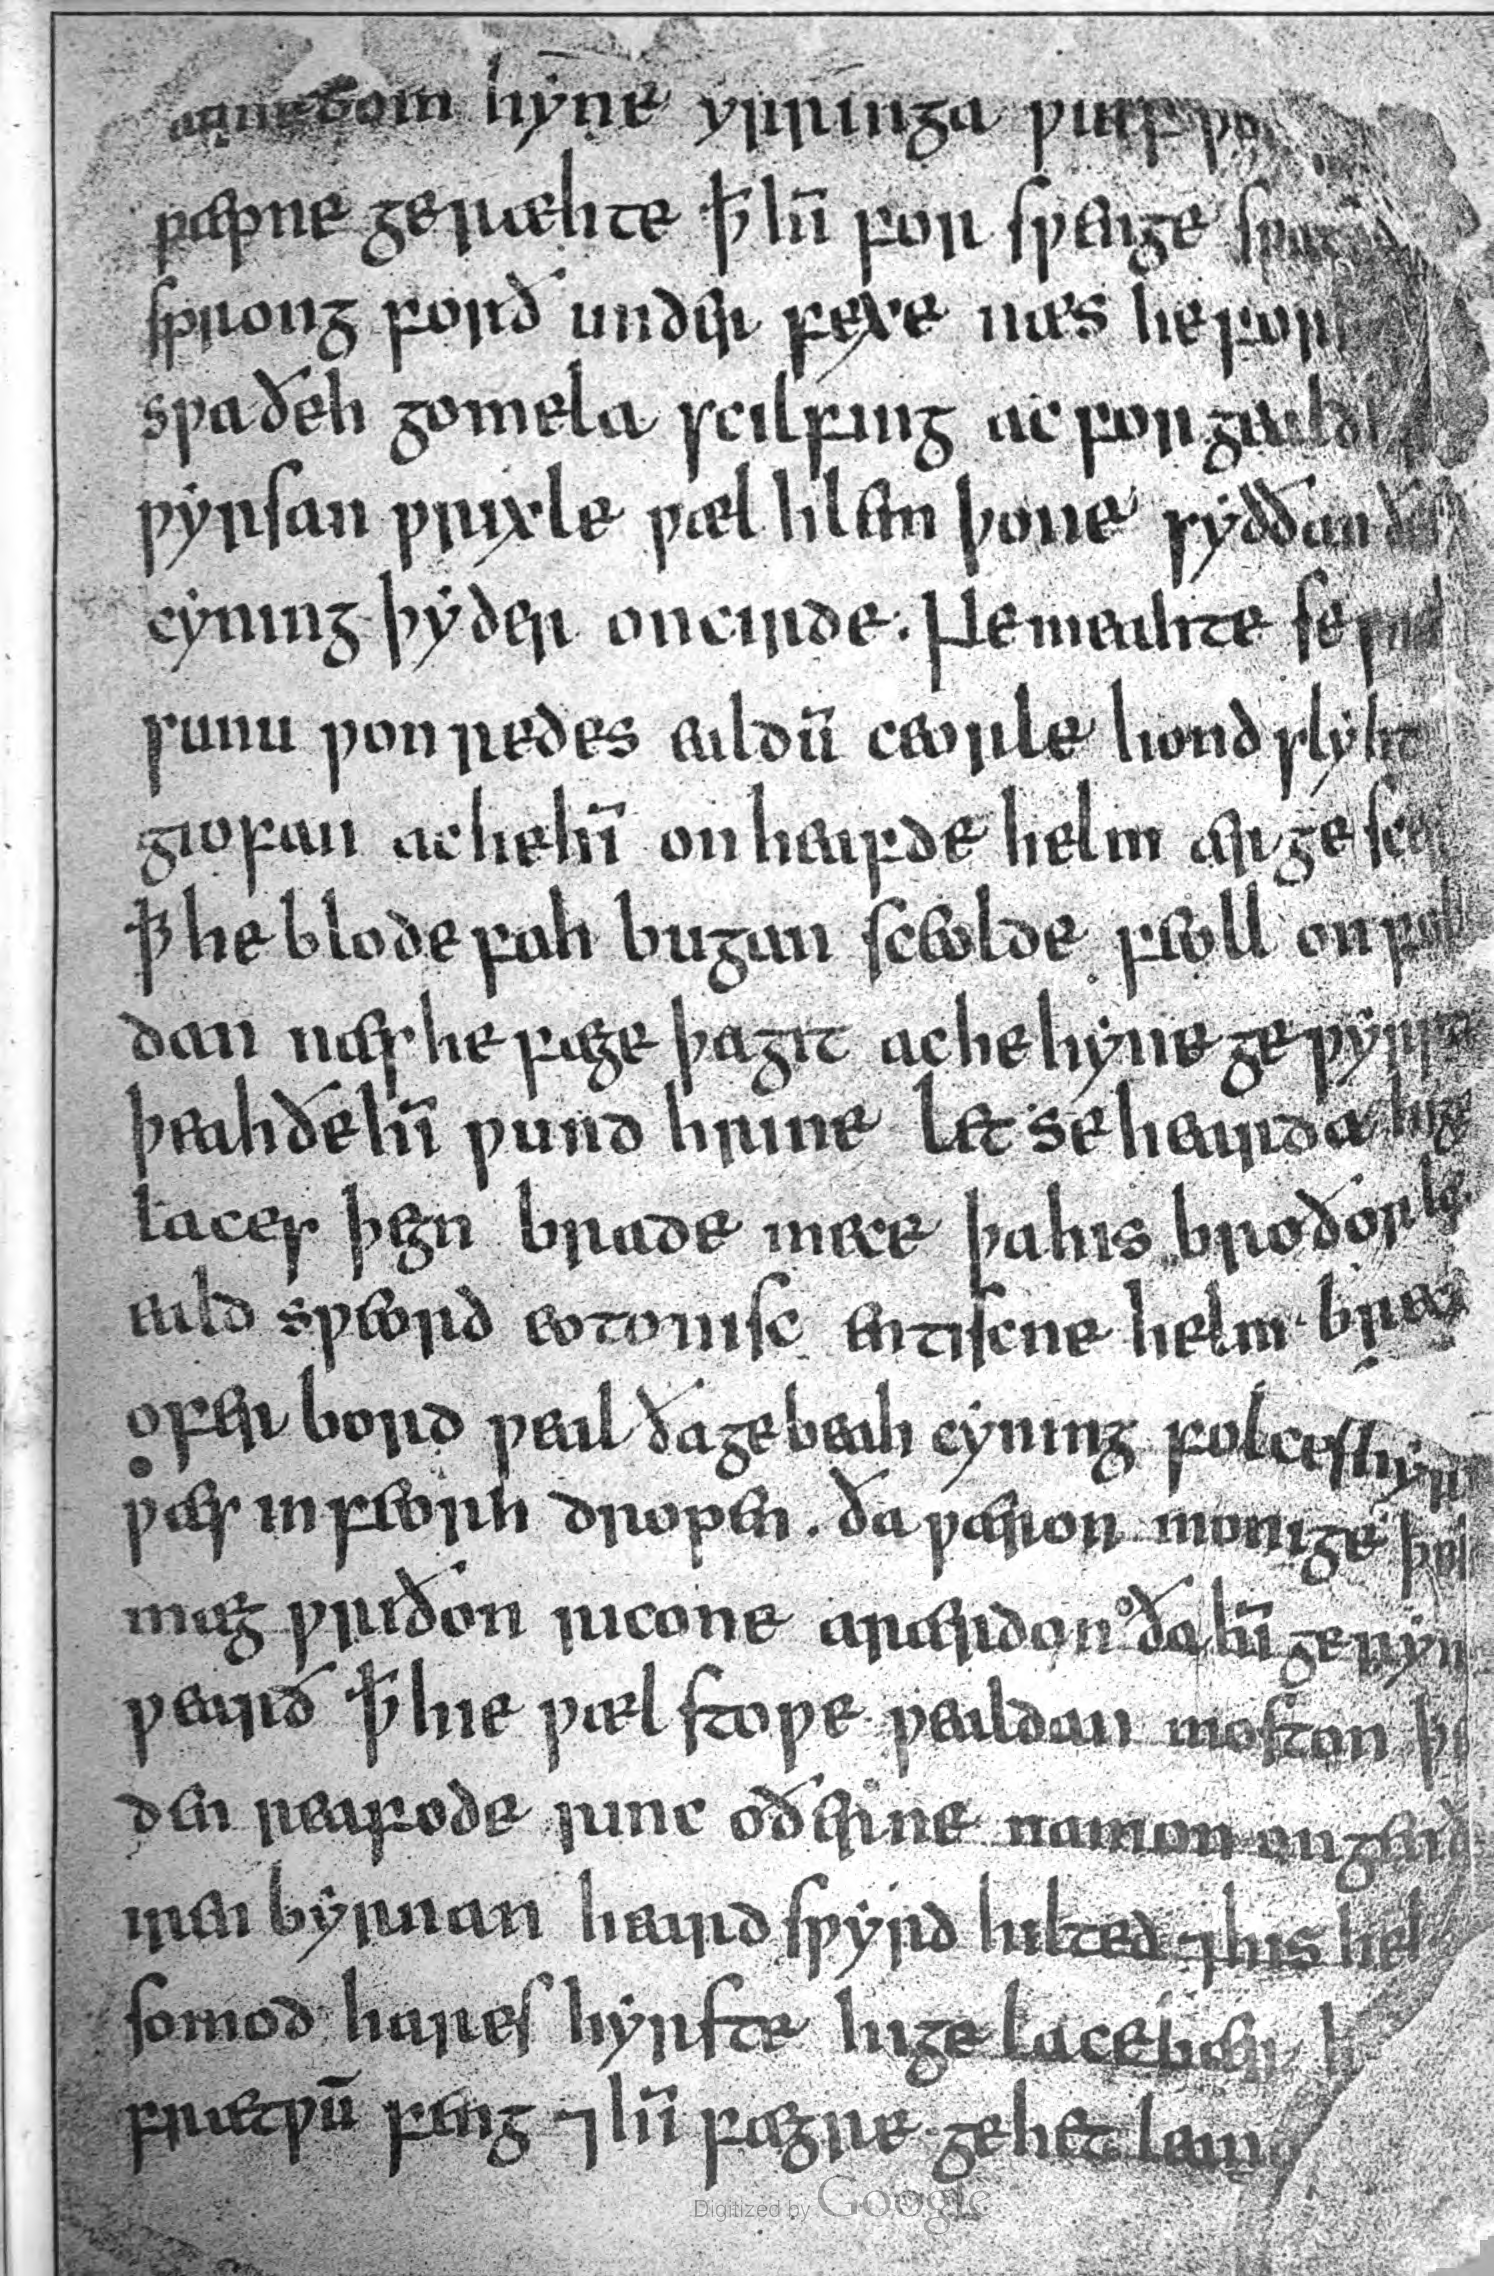 aṇne dom hyne yrringa ƿulf
ƿæpne geræhte ꝥ hī for sƿenge sƿat
sprong forð under fexe næs he forh
sƿa ðeh gomela scilfing ac forgeald
ƿyrsan ƿrixle ƿæl hlem þone syððan
cyning þyder oncirde. Ne meahte se
sunu ƿonredes ealdū ceorle hond slyht
giofan ac he hī on heafde helm ær ge scer
ꝥ he blode fah bugan sceolde feoll on fol
dan næs he fæge þa git ac he hyne ge ƿyrpte
þeah ðe hī ƿund hrine let se hearda hige
laces þegn brade mece þa his broðor læg
eald sƿeord eotonisc entiscne helm brecan
ofer bord ƿeal ða gebeah cyning folces hyr
ƿæs in feorh dropen. ða ƿæron monige þe
mæg ƿriðon ricone arærdon ða hī gerym
ƿearð ꝥ hie ƿæl stoƿe ƿealdan moston þe
den reafode rinc oðerne namon ongenð
iren byrnan heard sƿyrd hilted ⁊ his hel
somod hares hyrste hige lace bær h
frætƿū feng ⁊ hī fægre gehet lean
Digitized by Google